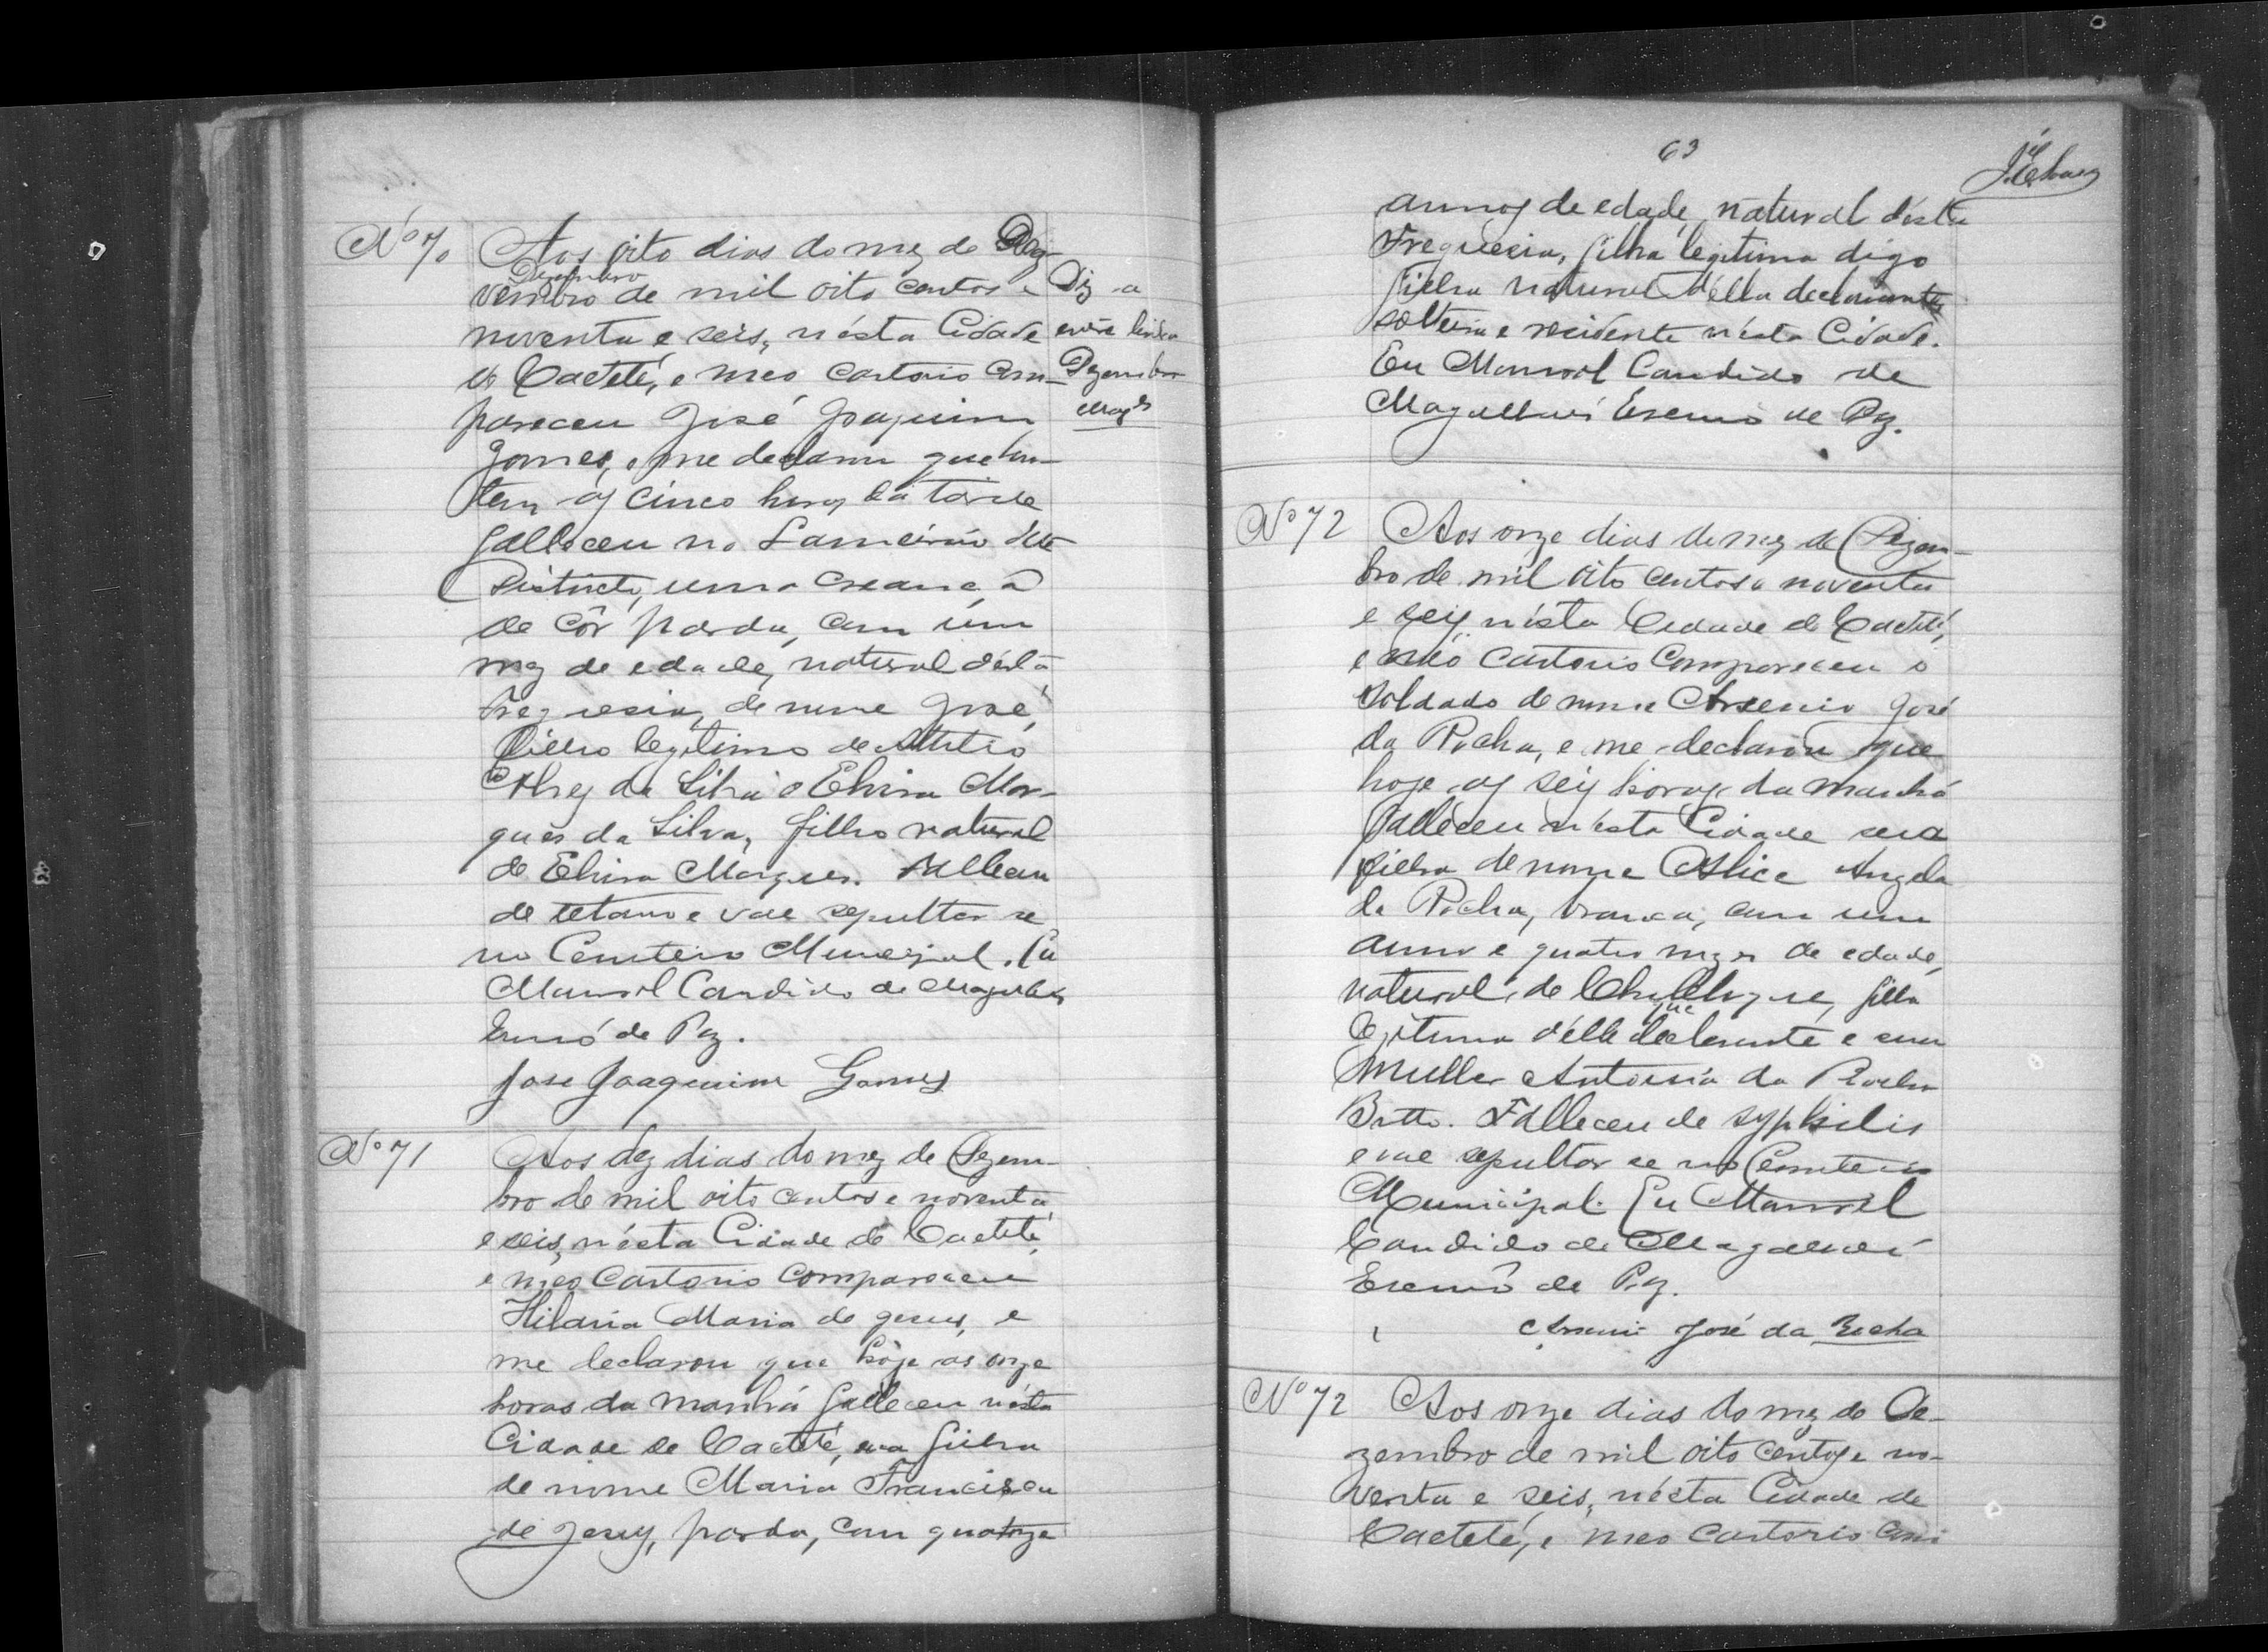 Nº 70
Aos oito dias do mez de Dez
Dezembro
vembro de mil oito centos e
noventa e seis, nésta Cidade
de Caeteté, e meo Cartorio com-
pareceu José Joaquim
Gomes, e me declarou que hon-
tem as cinco horas da tarde
falleceu no Lameirão deste
Districto, uma creança
de côr parda, com um
mez de edade, natural désta
Freguesia, de nome José,
filho legitimo de
Alves da Silva e Elvira Mar-
ques da Silva, filho natural
de Elvira Marques. Falleceu
de tetano e vae sepultar se
no Cemiterio Municipal. Eu
Manoel Candido de Magalhães
Escrivão de Paz.
José Joaquim Gomes
Diz a
entre linha
Dezembro
Magês
Nº 71
Aos dez dias do mez de Dezem-
bro de mil oito centos e noventa
e seis, nésta Cidade de Caeteté,
e meo Cartorio compareceu
Hilaria Maria de Jesus, e
me declarou que hoje as onze
horas da manhã falleceu nésta
Cidade de Caeteté, sua filha
de nome Maria Francisca
de Jesus, parda, com quatorze
63
annos de edade, natural désta
Freguesia, filha legitima digo
filha natural d'élla declarante
solteira e residente nésta Cidade.
Eu Manoel Candido de
Magalhães Escrivão de Paz.
Nº 72
Aos onze dias do mez de Dezem-
bro de mil oito centos e noventa
e seis nésta Cidade de Caeteté,
e meo Cartorio compareceu o
soldado de nome Arsenio José
da Rocha, e me declarou que
hoje as seis horas da manhã
falleceu nésta Cidade sua
filha de nome Alice Angela
da Rocha, branca, com um
anno e quatro mezes de edade,
natural de filha
legitima d'élle declarante e sua
mulher Antonia da Rocha
Britto. Falleceu de syphilis
e vae sepultar se no Cemiterio
Municipal. Eu Manoel
Candido de Magalhães
Escrivão de Paz.
Arsenio José da Rocha
Nº 72
Aos onze dias do mez de De-
zembro de mil oito centos e no-
venta e seis, nésta Cidade de
Caeteté, e meo Cartorio com